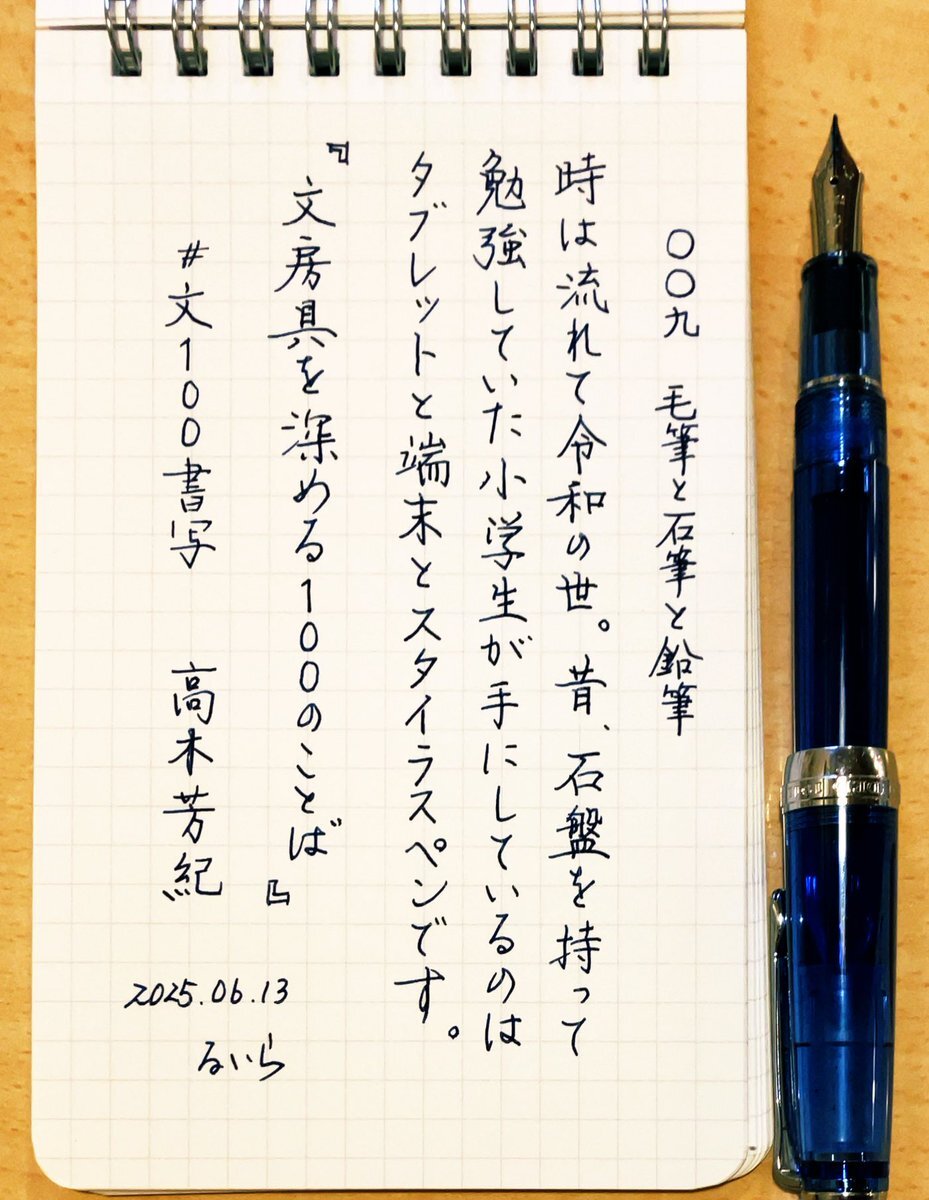 〇〇九　毛筆と石筆と鉛筆
時は流れて令和の世。昔、石盤を持って
勉強していた小学生が手にしているのは
タブレットと端末とスタイラスペンです。
『文房具を深める100のことば』
#文100書写　高木芳紀
2025.06.13
るいら